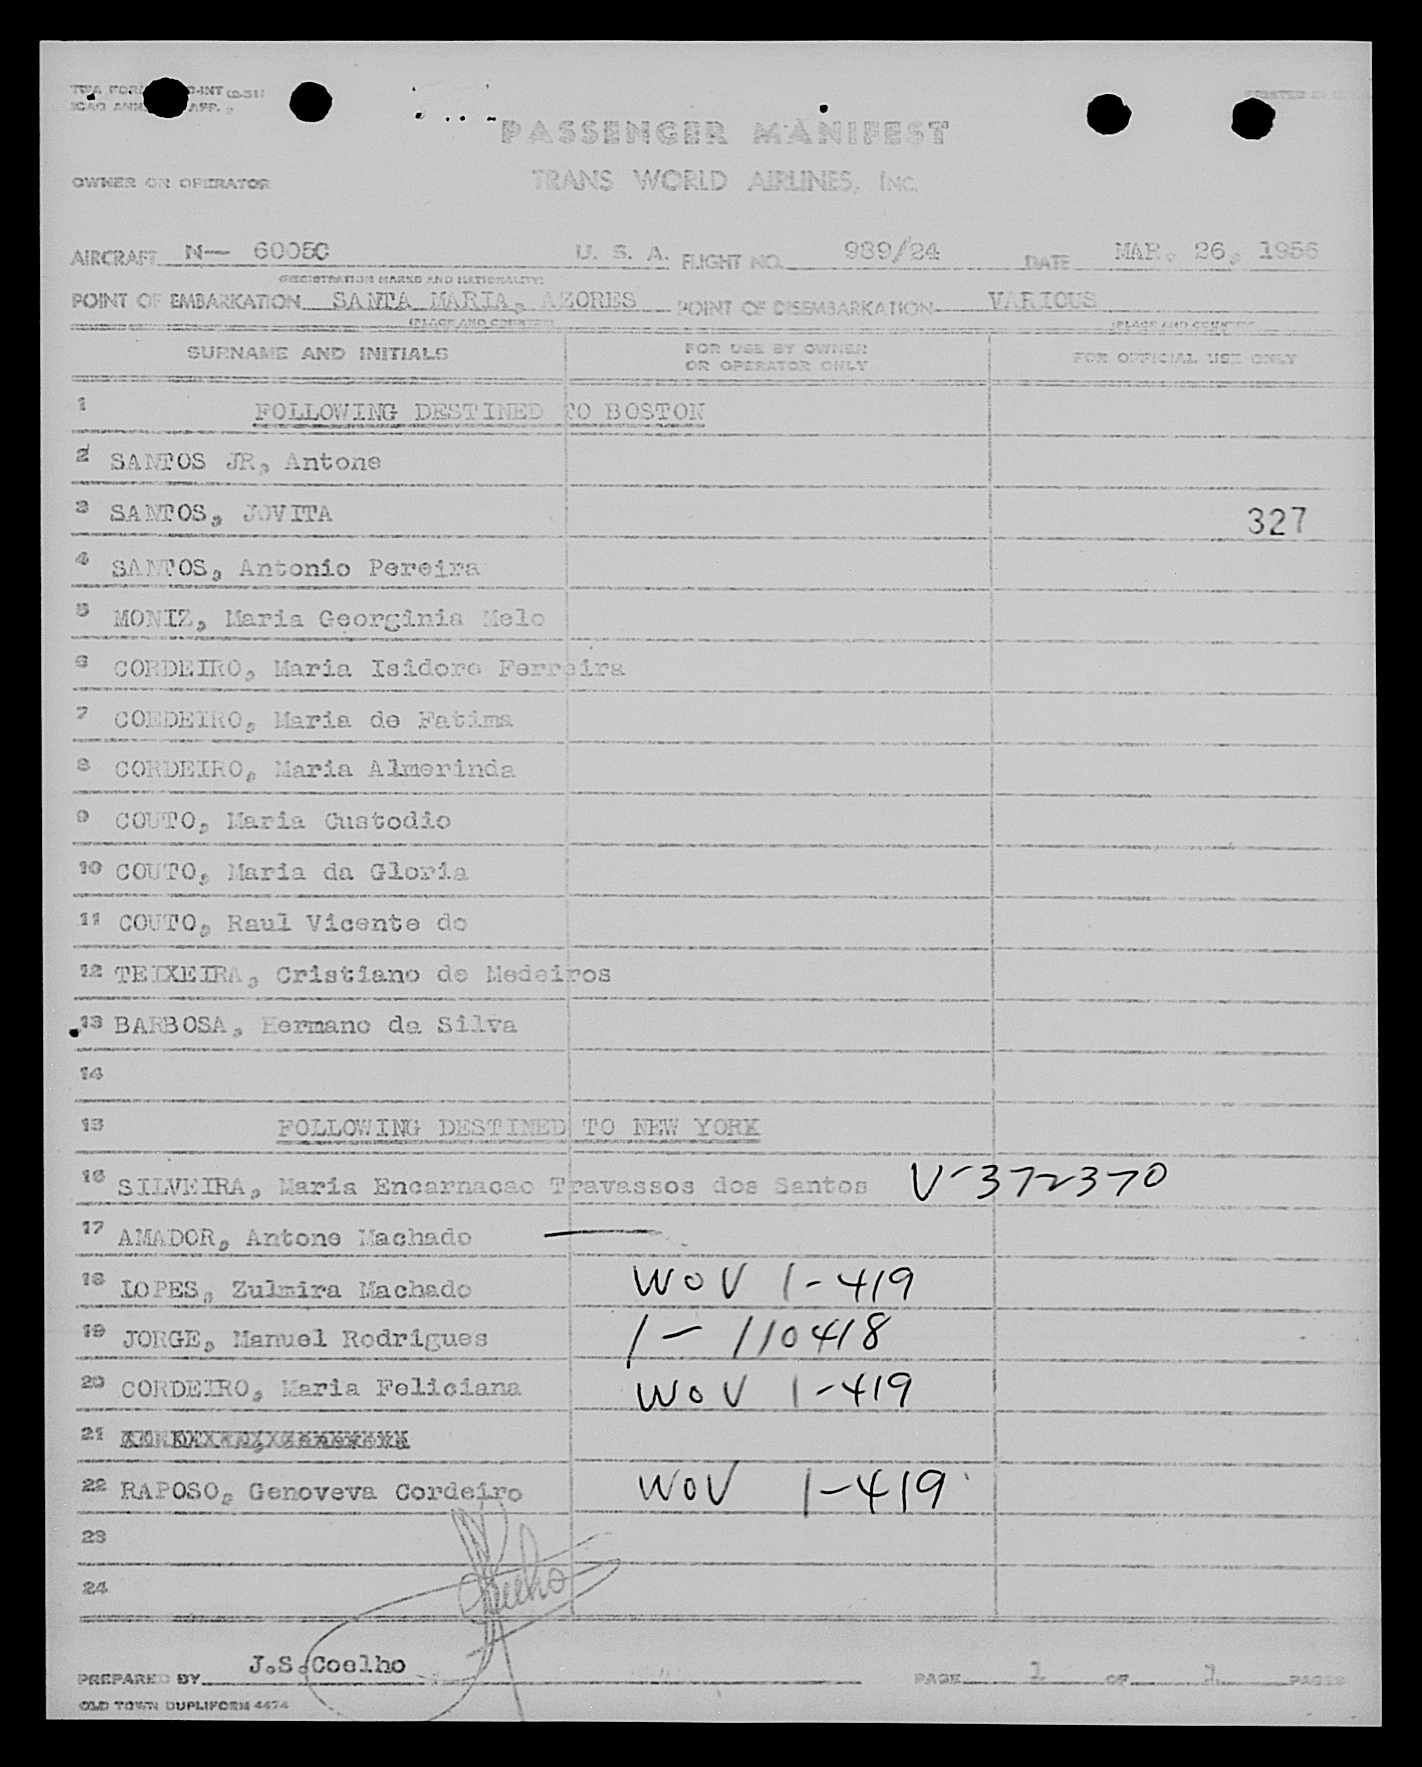 PASSENGER MANIFEST
OWNER OR OPERATOR TRANS WORLD AIRLINES, INC.
AIRCRAFT N— 6005C U. S. A. FLIGHT NO. 989/24 DATE MAR. 26, 1956
(REGISTRATION MARKS AND NATIONALITY)
POINT OF EMBARKATION SANTA MARIA, AZORES POINT OF DISEMBARKATION VARIOUS
(PLACE AND COUNTRY) (PLACE AND COUNTRY)
SURNAME AND INITIALS FOR USE BY OWNER OR OPERATOR ONLY FOR OFFICIAL USE ONLY
1 FOLLOWING DESTINED TO BOSTON
2 SANTOS JR, Antone
3 SANTOS, JOVITA 327
4 SANTOS, Antonio Pereira
5 MONIZ, Maria Georginia Melo
6 CORDEIRO, Maria Isidoro Ferreira
7 CORDEIRO, Maria de Fatima
8 CORDEIRO, Maria Almerinda
9 COUTO, Maria Custodio
10 COUTO, Maria da Gloria
11 COUTO, Raul Vicente do
12 TEIXEIRA, Cristiano de Medeiros
13 BARBOSA, Hermano da Silva
14
15 FOLLOWING DESTINED TO NEW YORK
16 SILVEIRA, Maria Encarnacao Travassos dos Santos V-372370
17 AMADOR, Antone Machado —
18 LOPES, Zulmira Machado WOV 1-419
19 JORGE, Manuel Rodrigues 1-110418
20 CORDEIRO, Maria Feliciana WOV 1-419
21
22 RAPOSO, Genoveva Cordeiro WOV 1-419
23
24
Coelho
PREPARED BY J.S.Coelho PAGE 1 OF 1 PAGES
OLD TOWN DUPLIFORM 4474